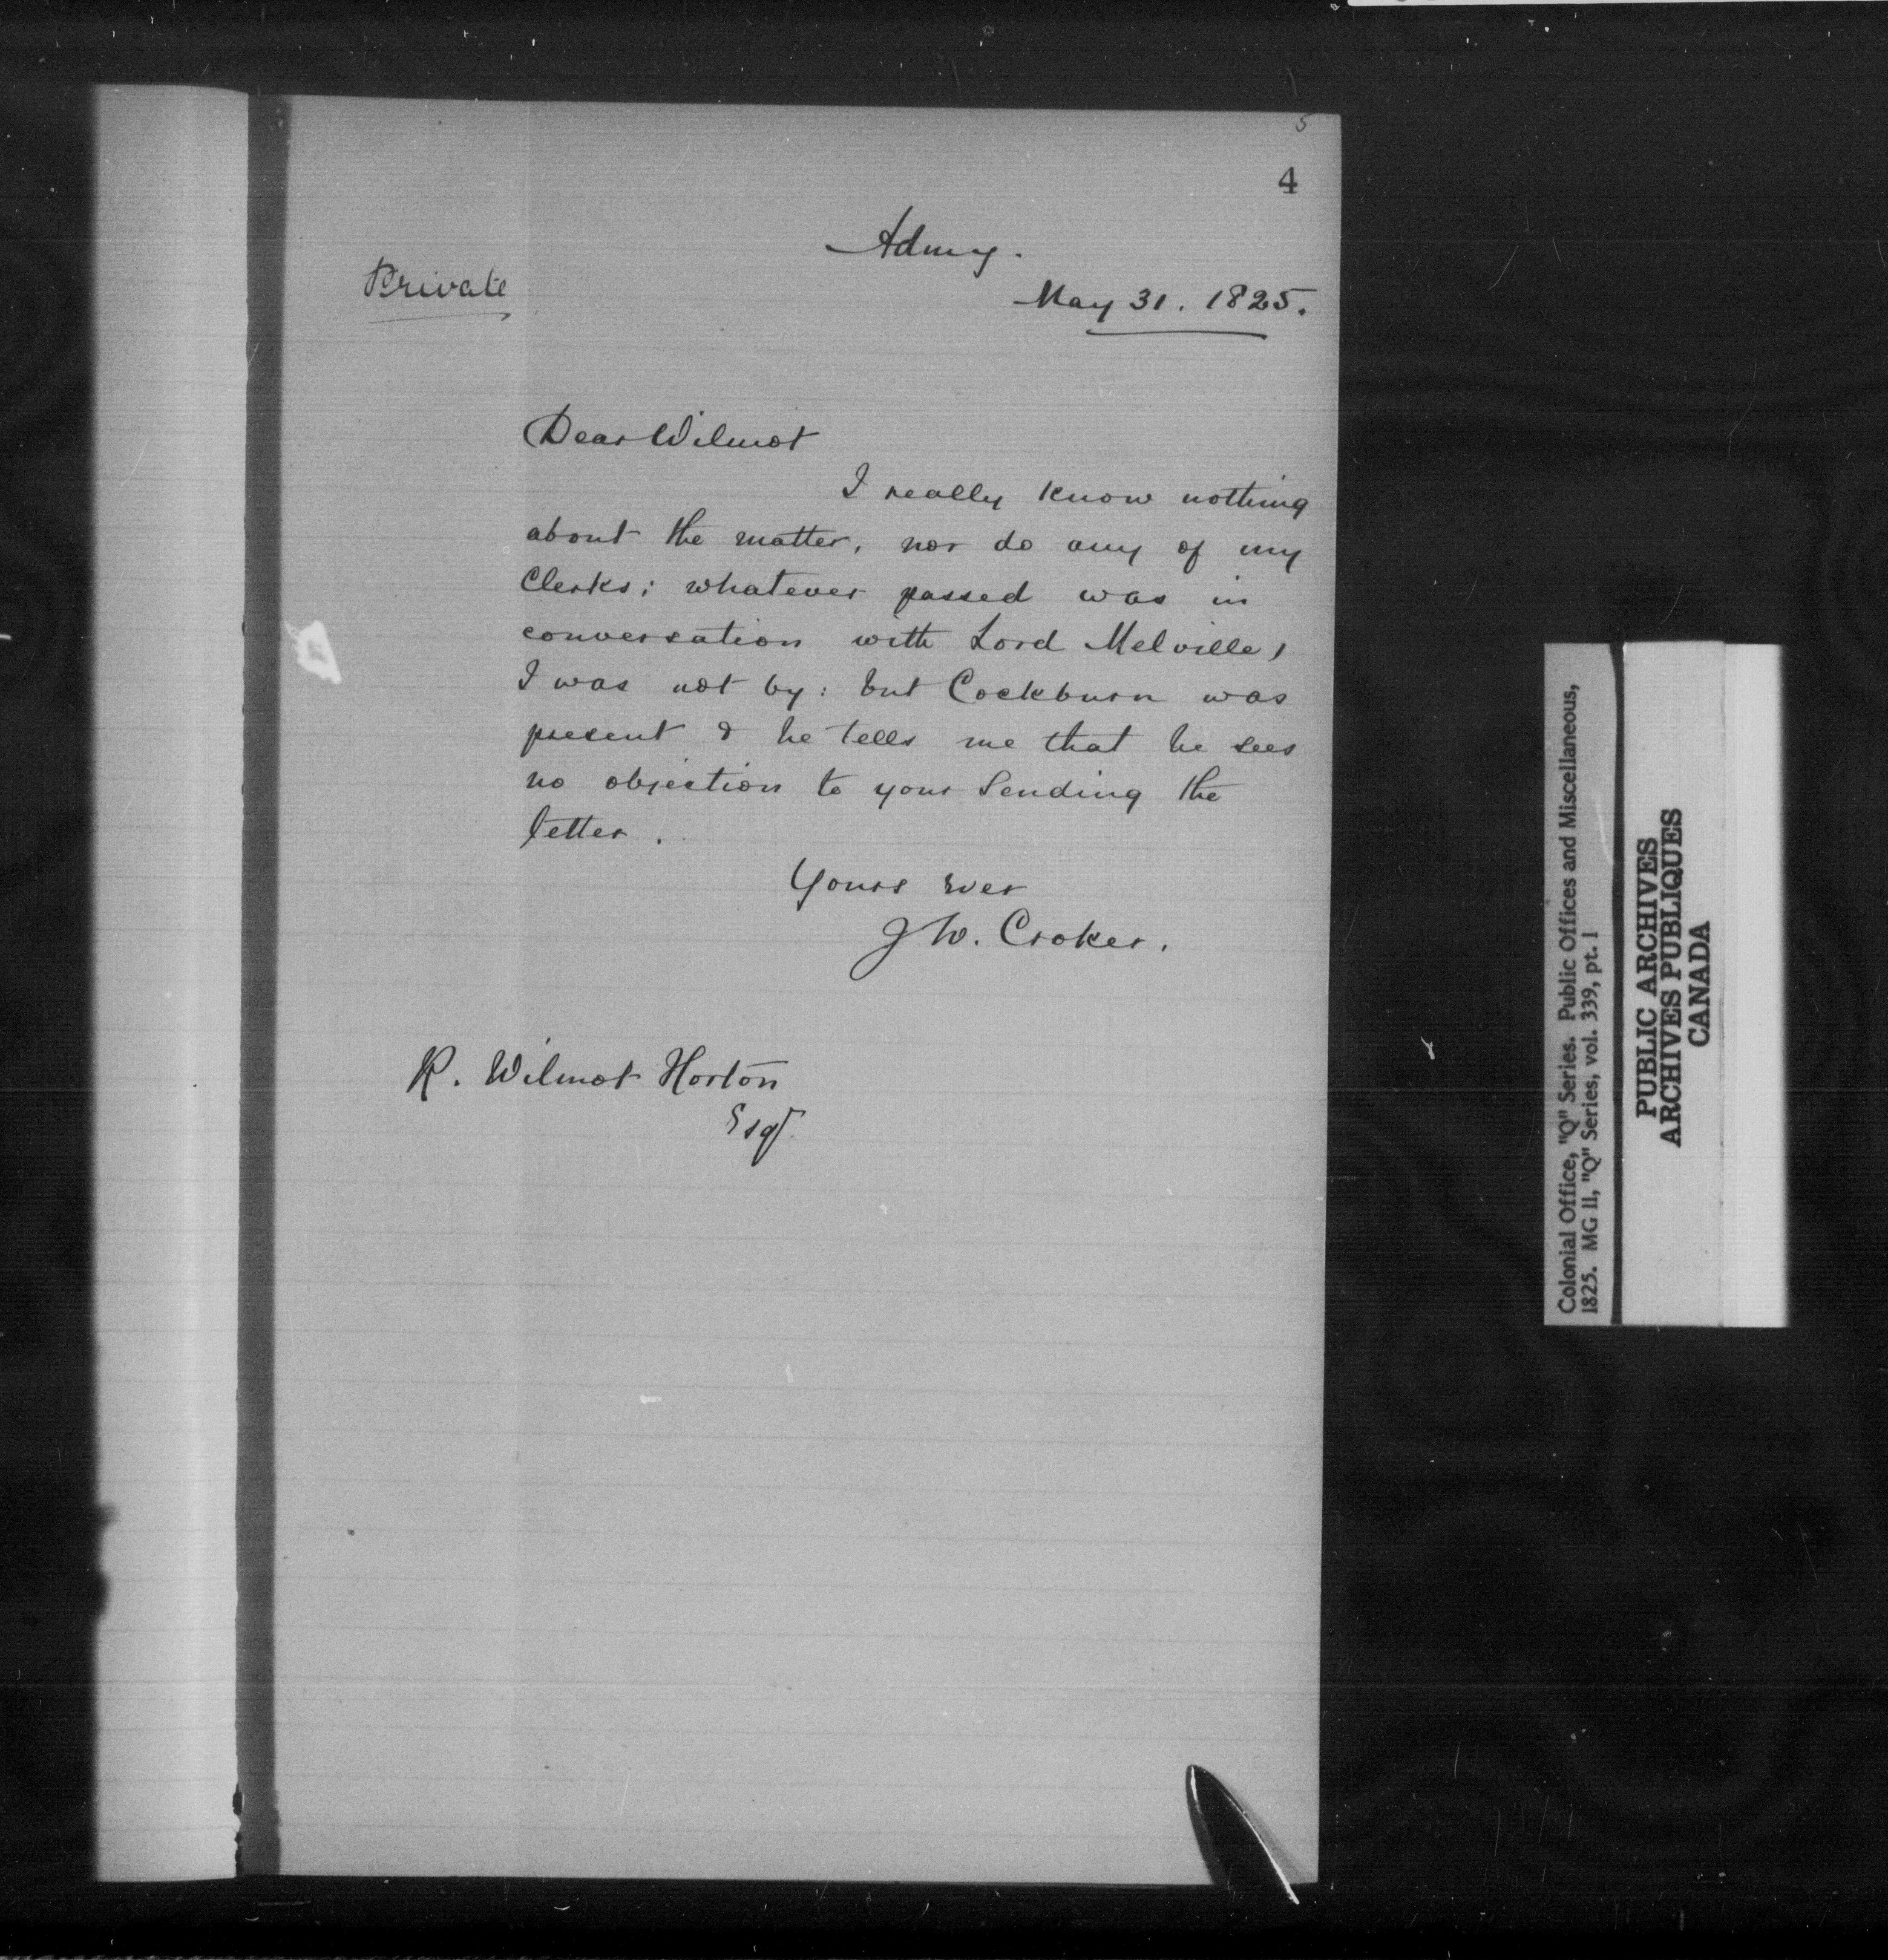 5
4
Admy.
Private
May 31. 1825.
Dear Wilmot
I really know nothing
about the matter, nor do any of my
Clerks; whatever passed was in
conversation with Lord Melville,
I was not by: but Cockburn was
present & he tells me that he sees
no objection to your Sending the
letter.
Yours ever
J W. Croker.
R. Wilmot Horton
Esqr.
Colonial Office, "Q" Series. Public Offices and Miscellaneous,
1825. MG 11, "Q" Series, vol. 339, pt. 1
PUBLIC ARCHIVES
ARCHIVES PUBLIQUES
CANADA